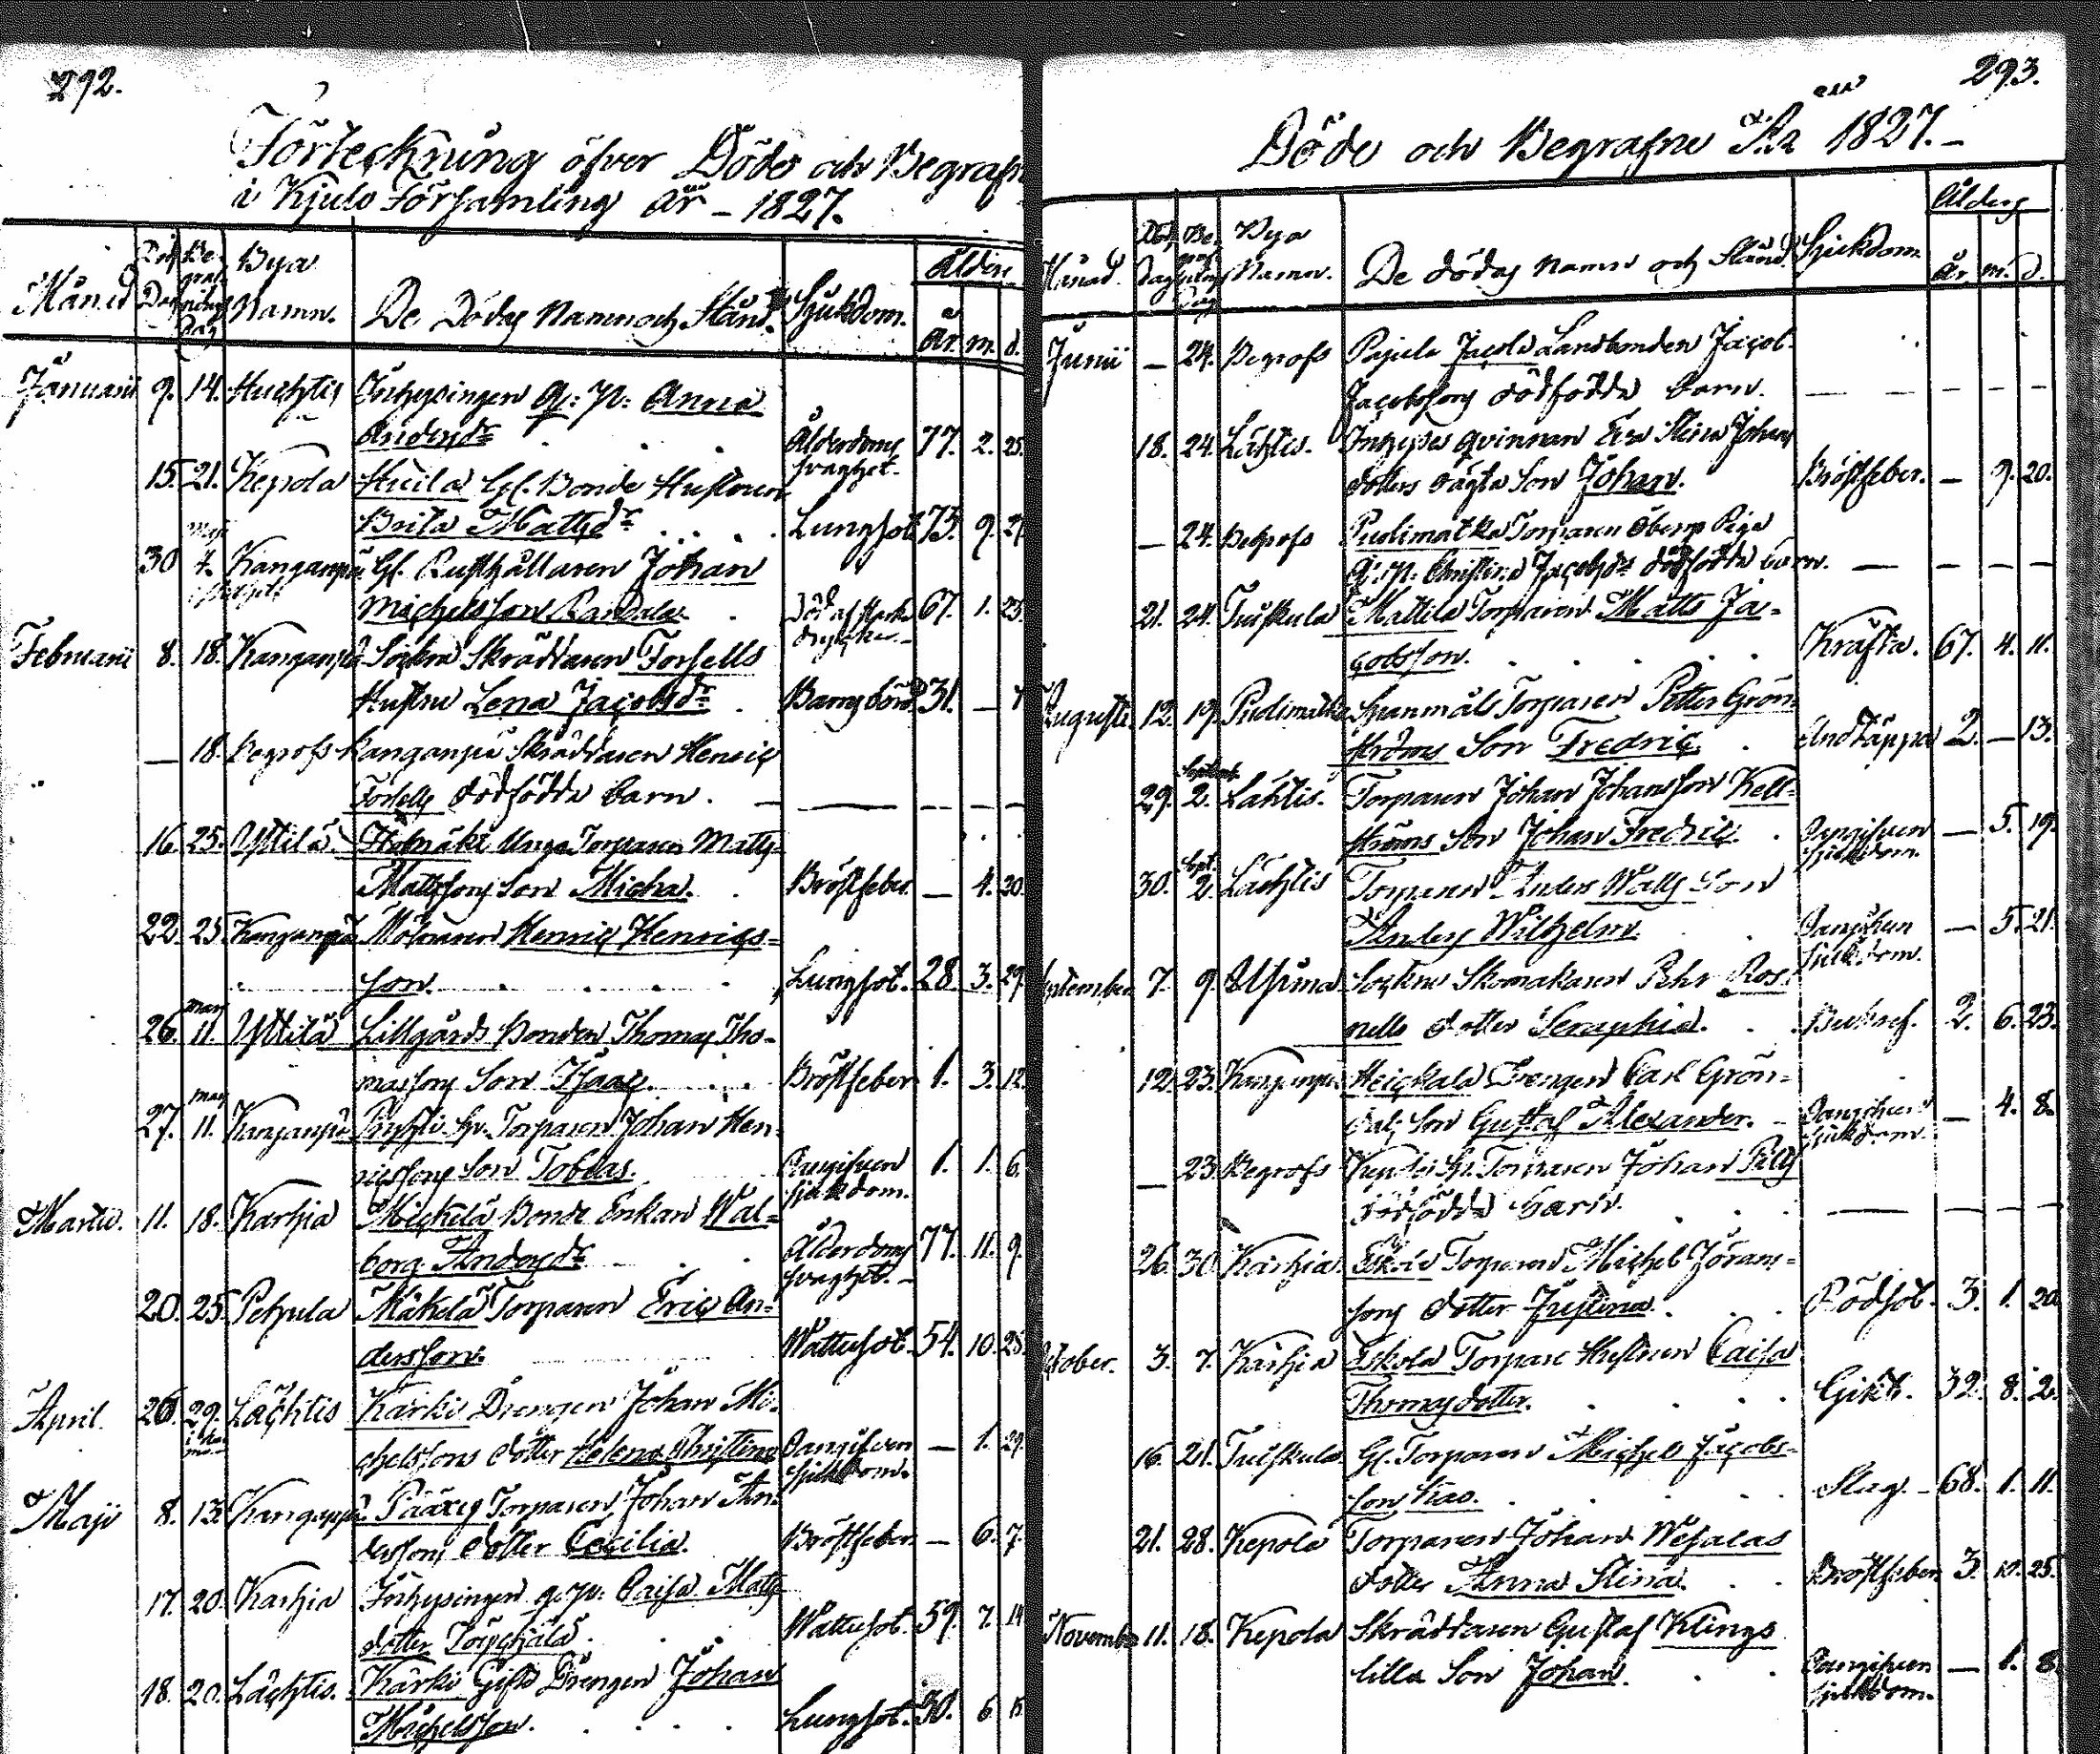 292.
Förteckning öfver Döde och Begrafn
i Kjulo Församling År - 1827.
Månad
Död Dag
Begrafnings Dag
Bya Namn.
De Dödas Namn och Stånd.
Sjukdom.
Ålder.
år. m. d.
Januarii 9. 14. Huchtis Inhysingen q: p: Anna
Andersdr Ålderdoms 77. 2. 25.
svaghet.
15. 21. Kepola Huila Gl. Bonde Hustrun
Brita Mattsdr Lungsot 73. 9. 27
30 4. Kanganpä Gl. Rusthållaren Johan
Michelsson Död af starka 67. 1. 23.
drycker
Februarii 8. 18. Kanganpä Sockne Skräddaren Forsells
Hustru Lena Jacobsdr Barnsbörd 31. —
— 18. Begrofs Kanganpää Skräddaren Henric
Forsells dödfödda barn. — — — —
16. 25. Yttilä Unga Torparen Matts
Mattssons Son Micha. Bröstfeber — 4. 20.
22. 25. Kanganpä Mölnaren Henric Henrics-
son. Lungsot. 28. 3. 29.
26. Mars 11. Yttilä Lillgårds Bonden Thomas Tho-
massons Son Isaac. Bröstfeber 1. 3. 12.
27. Mars 11. Kanganpä Torparen Johan Hen-
ricssons Son Tobias. Oangifven 1. 1. 6.
sjukdom.
Martii. 11. 18. Karhia Mickelä Bonde Enkan Wal-
borg Andersdr Ålderdoms 77. 11. 9.
svaghet.
20. 25. Pehula Mäkelä Torparen Eric An-
dersson. Wattusot. 54. 10. 28.
April. 26. 29. Lächtis Kärki Drengen Johan Mi-
chelssons dotter Helena Christina Oangifven — 1. 29.
sjukdom.
Maji 8. 13. Kanganpä Torparen Johan
derssons dotter Cecilia. Bröstfeber — 6. 7.
17. 20. Karhia Inhysingen q: p: Caisa Matts
dotter Wattusot. 59. 7. 14
18. 20. Lächtis. Kärki Gifte Drengen Johan
Michelsson. Lungsot. 30. 6. 15.
293.
Döde och Begrafne År 1827. -
Månad.
Död Dag
Begrafnings Dag
Bya Namn.
De dödas namn och Stånd.
Sjukdom.
Ålders
år. m. d.
Junii — 24. Begrofs Pajula Landbonden Jacob
Jacobssons dödfödda barn. — — — —
18. 24. Lächtis. Inhyses qvinnan Eva Stina Johans
dotters oägta Son Johan. Bröstfeber. — 9. 20.
— 24. Begrofs Puolimatka Torparen Piga
q: p: Christina Jacobsdr dödfödda barn. — — —
21. 24. Tuiskula Mattila Torparen Matts Ja-
cobsson. Kräfta. 67. 4. 11.
Augusti. 12. 19. Puolimatka Spanmåls Torparen Petter Grön-
ströms Son Fredric Andtäppa 2. — 13.
29. Septemb. 2. Lähtis. Torparen Johan Johansson Kell-
ströms Son Johan Fredric. Oangifven — 5. 19.
sjukdom.
30. Sept. 2. Lächtis Torparen Anders Walls Son
Anders Wilhelm Oangifven — 5. 21.
sjukdom.
September 7. 9. Sockne Skomakaren Pehr Ros-
nells dotter Seraphia. 2. 6. 23.
12. 23. Kanganpä Heickala Drengen Carl Grön-
dals Son Gustaf Alexander. Oangifven — 4. 8.
sjukdom.
— 23. Begrofs Torparen Johan
dödfödda barn. — — — —
26. 30. Karhia Eskola Torparen Michel Jörans-
sons dotter Justina. Rödsot. 3. 1. 20.
October. 3. 7. Karhia Eskola Torpare Hustrun Caisa
Thomasdotter. Gikt. 32. 8. 2.
16. 21. Tuiskula Gl. Torparen Michel Jacobs-
son Slag. 68. 1. 11.
21. 28. Kepola Torparen Johan Wesalas
dotter Anna Stina. Bröstfeber 3. 10. 25.
November 11. 18. Kepola Skräddaren Gustaf Klings
lilla Son Johan. Oangifven — 1. 8.
sjukdom.